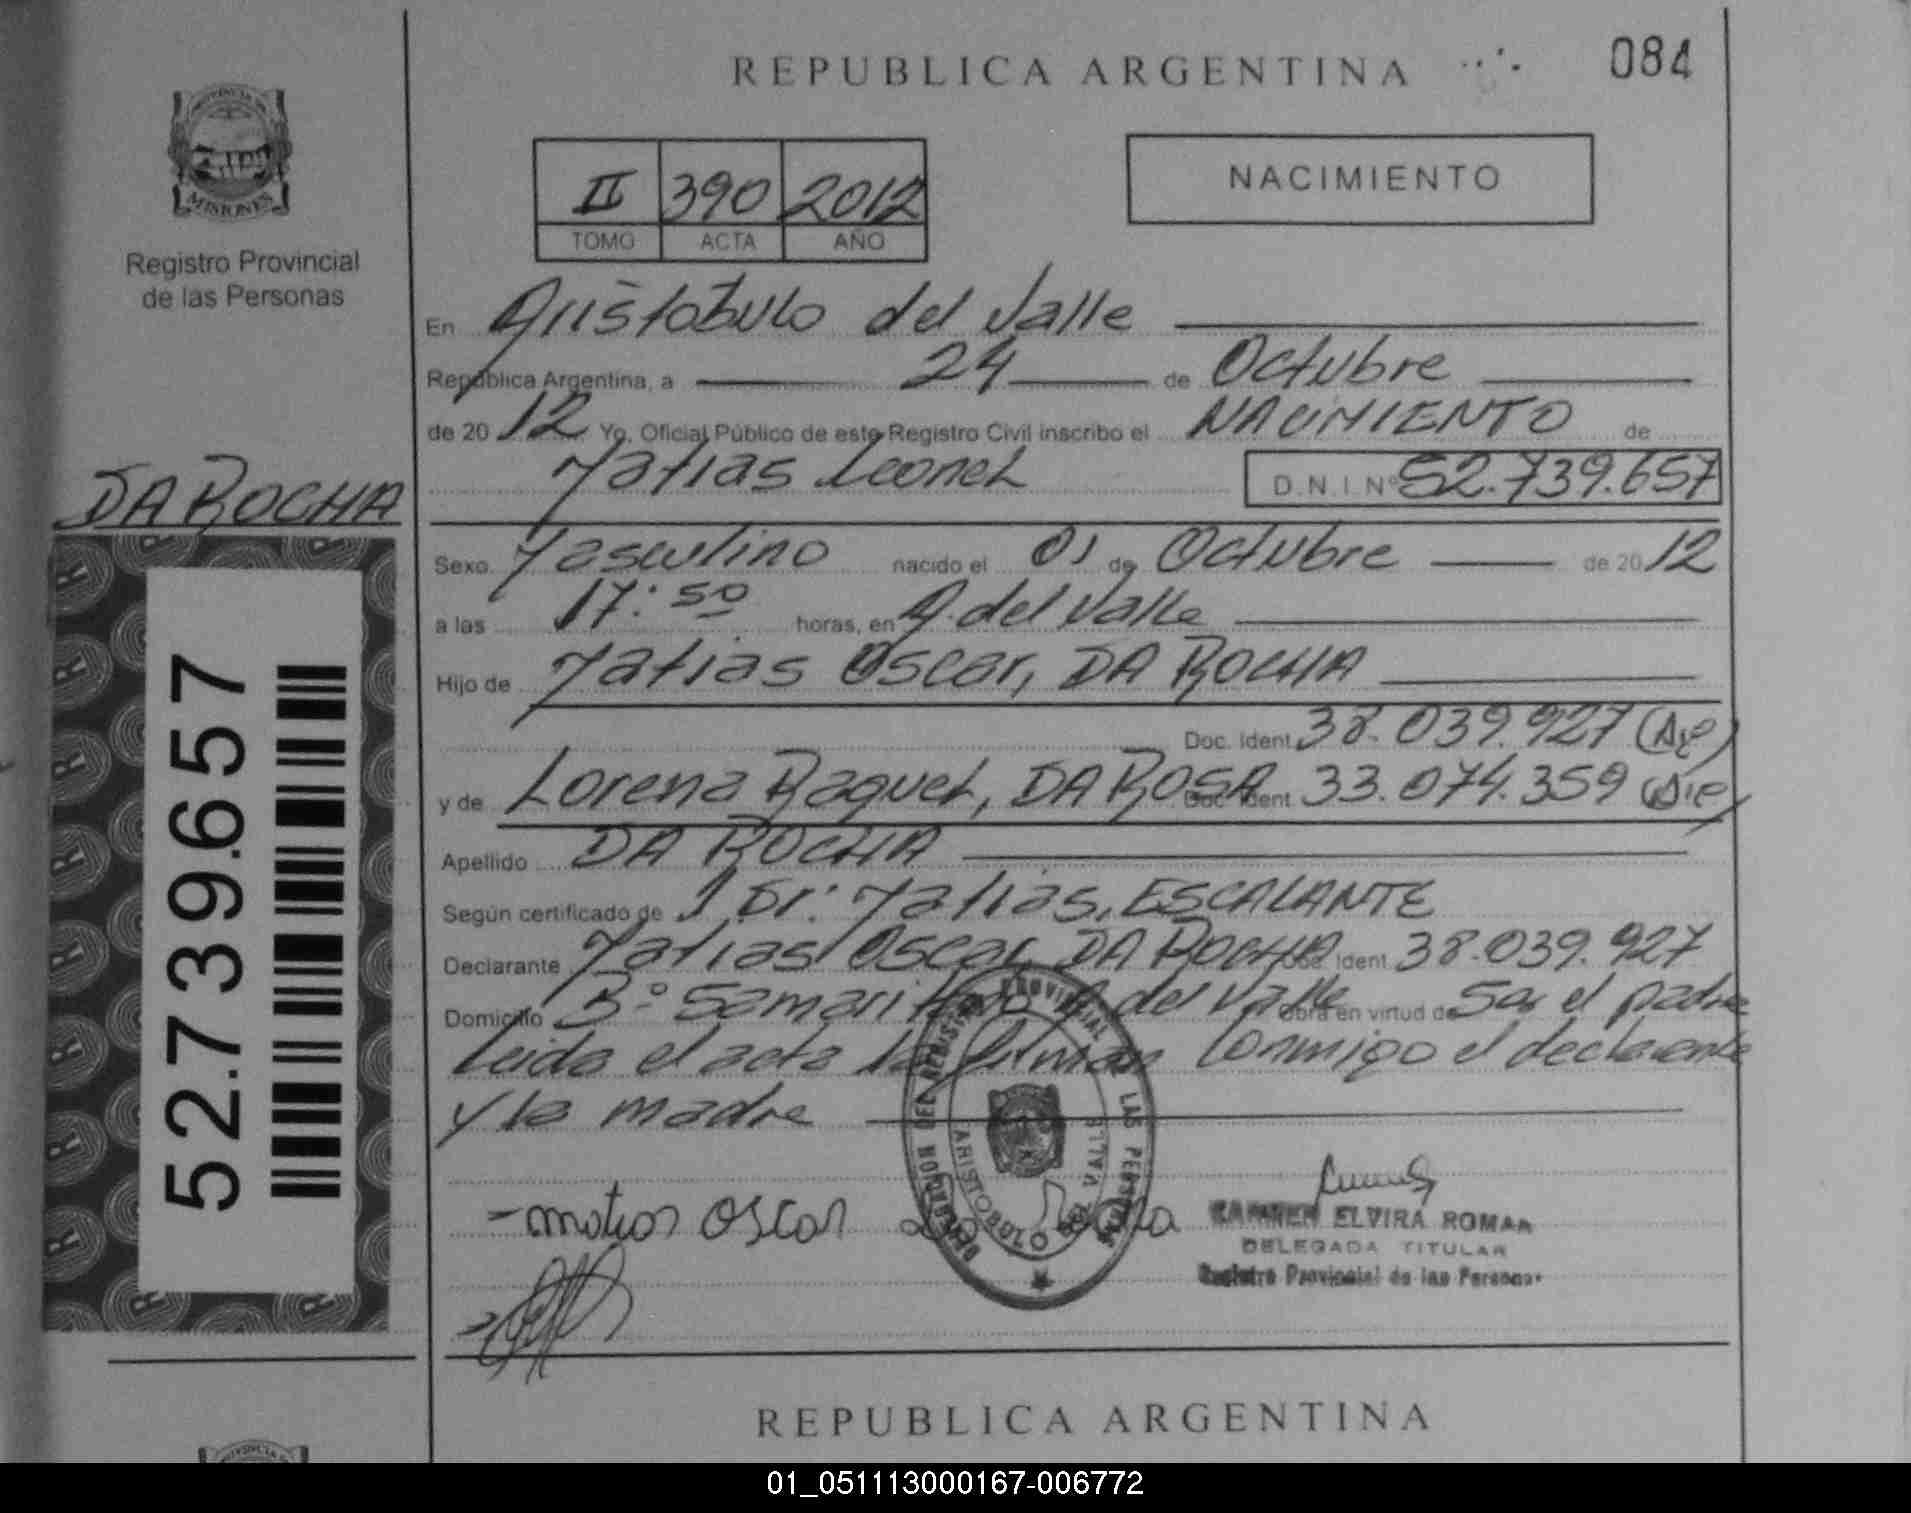 REPUBLICA ARGENTINA
084
PROVINCIA DE
MISIONES
Registro Provincial
de las Personas
II 390 2012
TOMO ACTA AÑO
NACIMIENTO
En Aristóbulo del Valle
República Argentina, a 24 de Octubre
de 20 12 Yo, Oficial Público de este Registro Civil inscribo el NACIMIENTO de
Matias Leonel D.N.I.Nº 52.739.657
DA ROCHA
Sexo Masculino nacido el 01 de Octubre de 20 12
a las 17:50 horas, en A. del Valle
Hijo de Matias Oscar, DA ROCHA
Doc. Ident. 38.039.927
y de Lorena Raquel, DA ROSA Doc. Ident. 33.074.359
Apellido DA ROCHA
Según certificado de Dr: Matias, ESCALANTE
Declarante Matias Oscar DA ROCHA Doc. Ident. 38.039.927
Domicilio Bº Samaritano A. del Valle Obra en virtud de Ser el padre
Leida el acta la firman Conmigo el declarante
y la madre
52.739.657
REGISTRO PROVINCIAL DE LAS PERSONAS
ARISTOBULO DEL VALLE
- matias oscar da rocha
CARMEN ELVIRA ROMAN
DELEGADA TITULAR
Registro Provincial de las Personas
REPUBLICA ARGENTINA
01_051113000167-006772